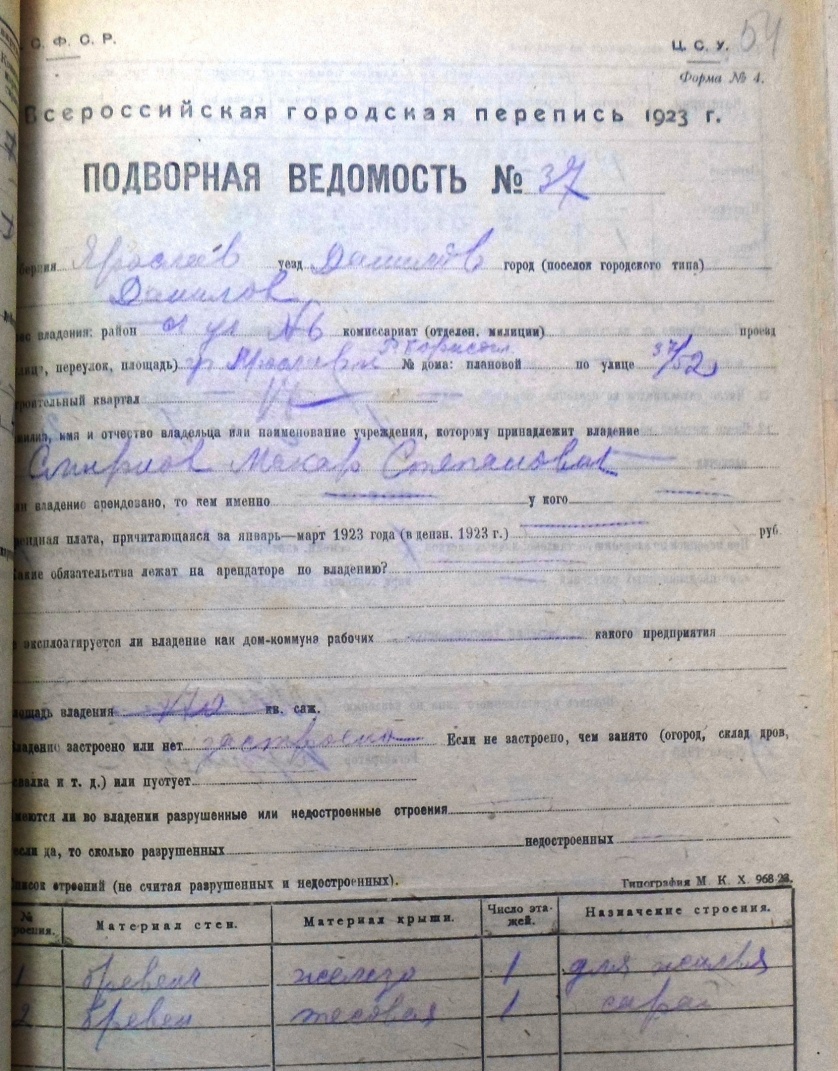 С. Ф. С. Р. Ц. С. У. 54
Форма № 4.
Всероссийская городская перепись 1923 г.
ПОДВОРНАЯ ВЕДОМОСТЬ № 37
берния Ярослав уезд Данилов город (поселок городского типа)
Данилов
рес владения: район №6 комиссариат (отделен. милиции) проезд
лица, переулок, площадь) № дома: плановой по улице 37/52
роительный квартал
милия, имя и отчество владельца или наименование учреждения, которому принадлежит владение
Смирнов Макар Степанович
ли владение арендовано, то кем именно у кого
рендная плата, причитающаяся за январь—март 1923 года (в дензн. 1923 г.) руб.
Какие обязательства лежат на арендаторе по владению?
е эксплоатируется ли владение как дом-коммуна рабочих какого предприятия
лощадь владения кв. саж.
Владение застроено или нет застроено Если не застроено, чем занято (огород, склад дров,
свалка и т. д.) или пустует
Имеются ли во владении разрушенные или недостроенные строения
Если да, то сколько разрушенных недостроенных
Список строений (не считая разрушенных и недостроенных). Типография М. К. Х. 968-23.
№ роения. Материал стен. Материал крыши. Число эта-жей. Назначение строения.
1 бревен железо 1 для жилья
2 бревен тесовая 1 сарай